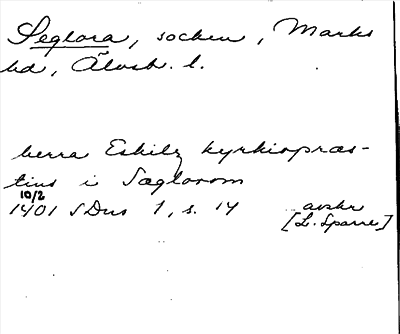 Seglora, socken, Marks
hd, Älvsb. l.
herra Eskilz kyrkiopræs-
tins i Sæglorom
10/2
1401 SDns 1, s. 14 avskr
[L. Sparre]